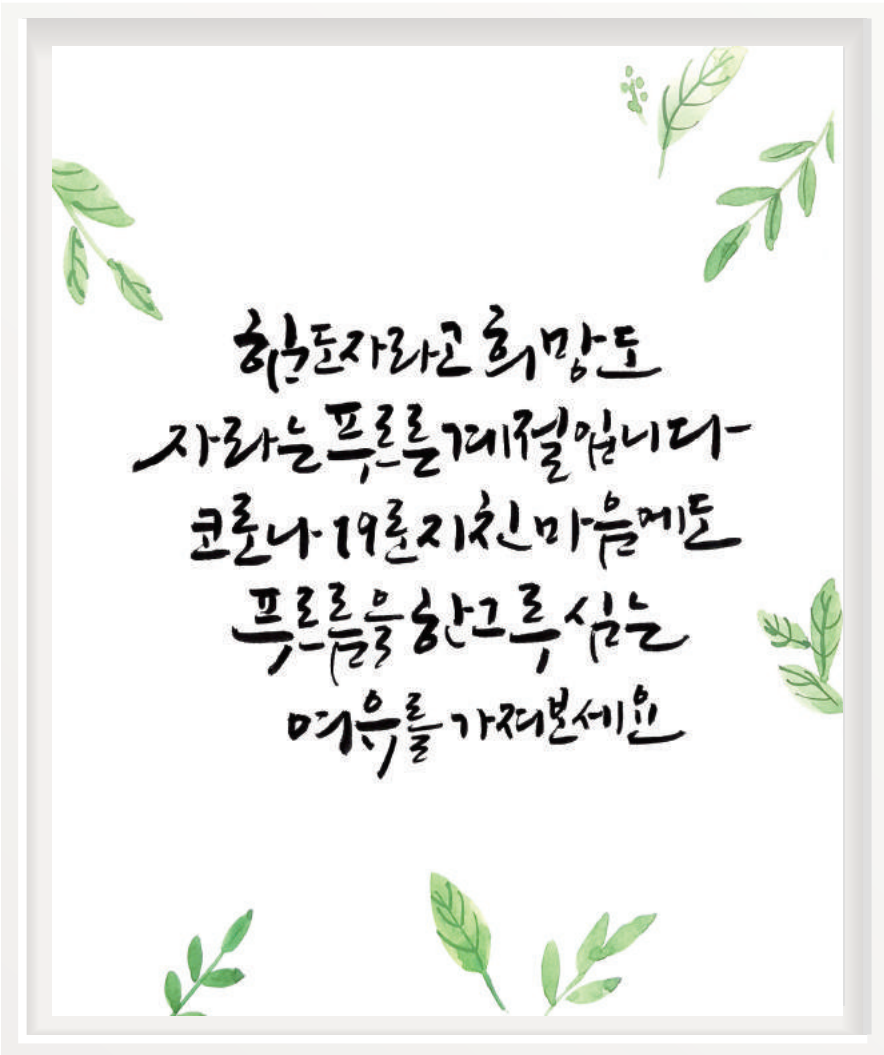 도 자라고 희망도
자라는 푸르른 계절입니다
코로나 19로 지친 마음에도
푸르름을 한그루 심는
여유를 가져보세요